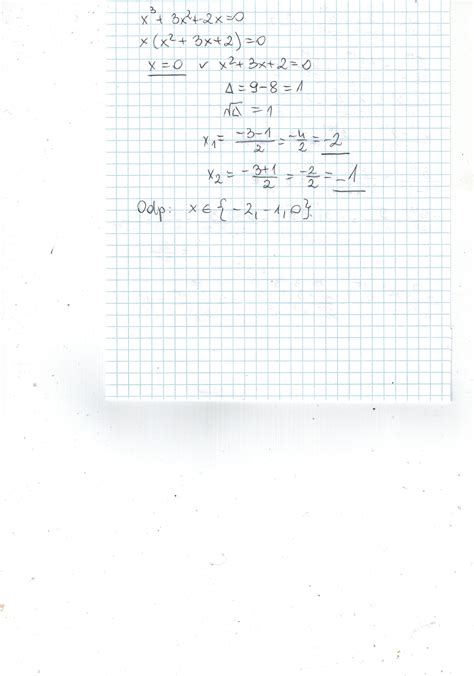 x³ + 3x² + 2x = 0
x(x² + 3x + 2) = 0
x = 0 ∨ x² + 3x + 2 = 0
Δ = 9 - 8 = 1
√Δ = 1
x₁ = \frac{-3-1}{2} = \frac{-4}{2} = -2
x₂ = \frac{-3+1}{2} = \frac{-2}{2} = -1
Odp: x ∈ {-2, -1, 0}